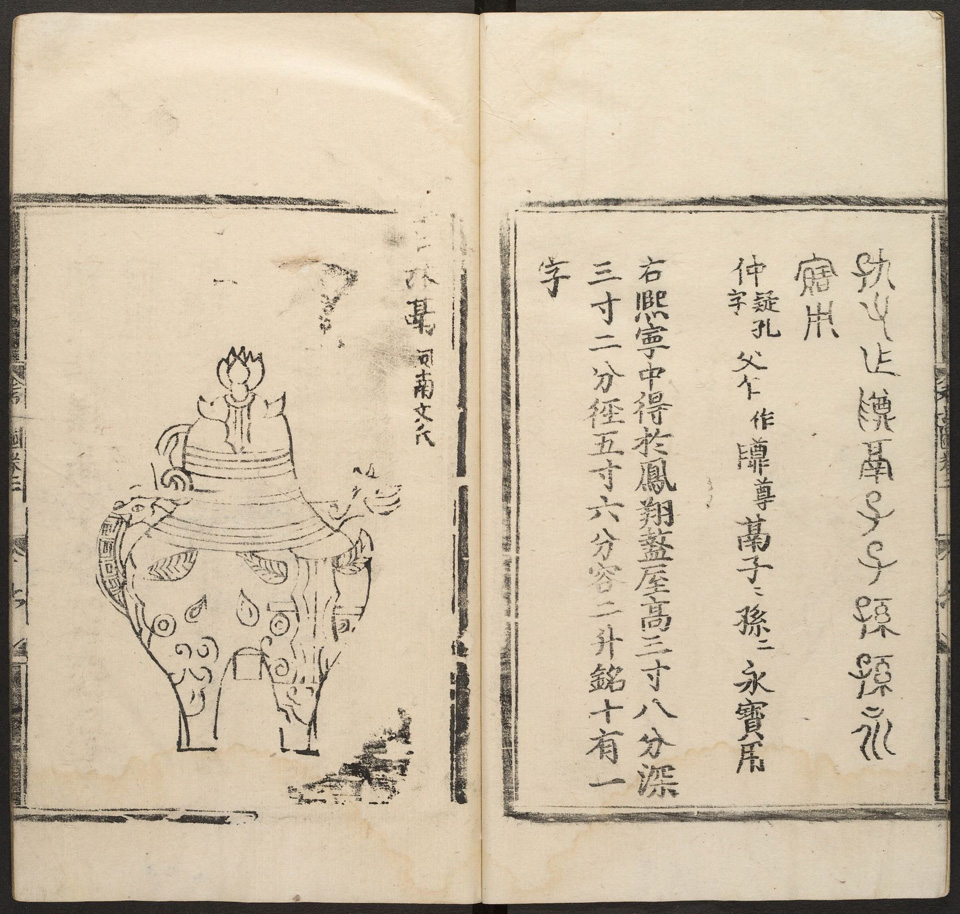 作尊鬲子子孫孫永
寶用
仲疑孔字父乍作尊鬲子〻孫〻永寶用
右熙寧中得於鳳翔盩厔高三寸八分深
三寸二分徑五寸六分容二升銘十有一
字
鬲河南文氏